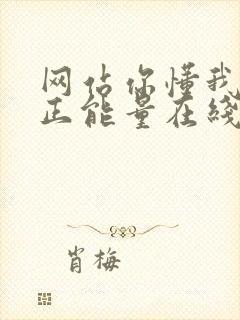 网站你懂我
正能量在线
肖梅